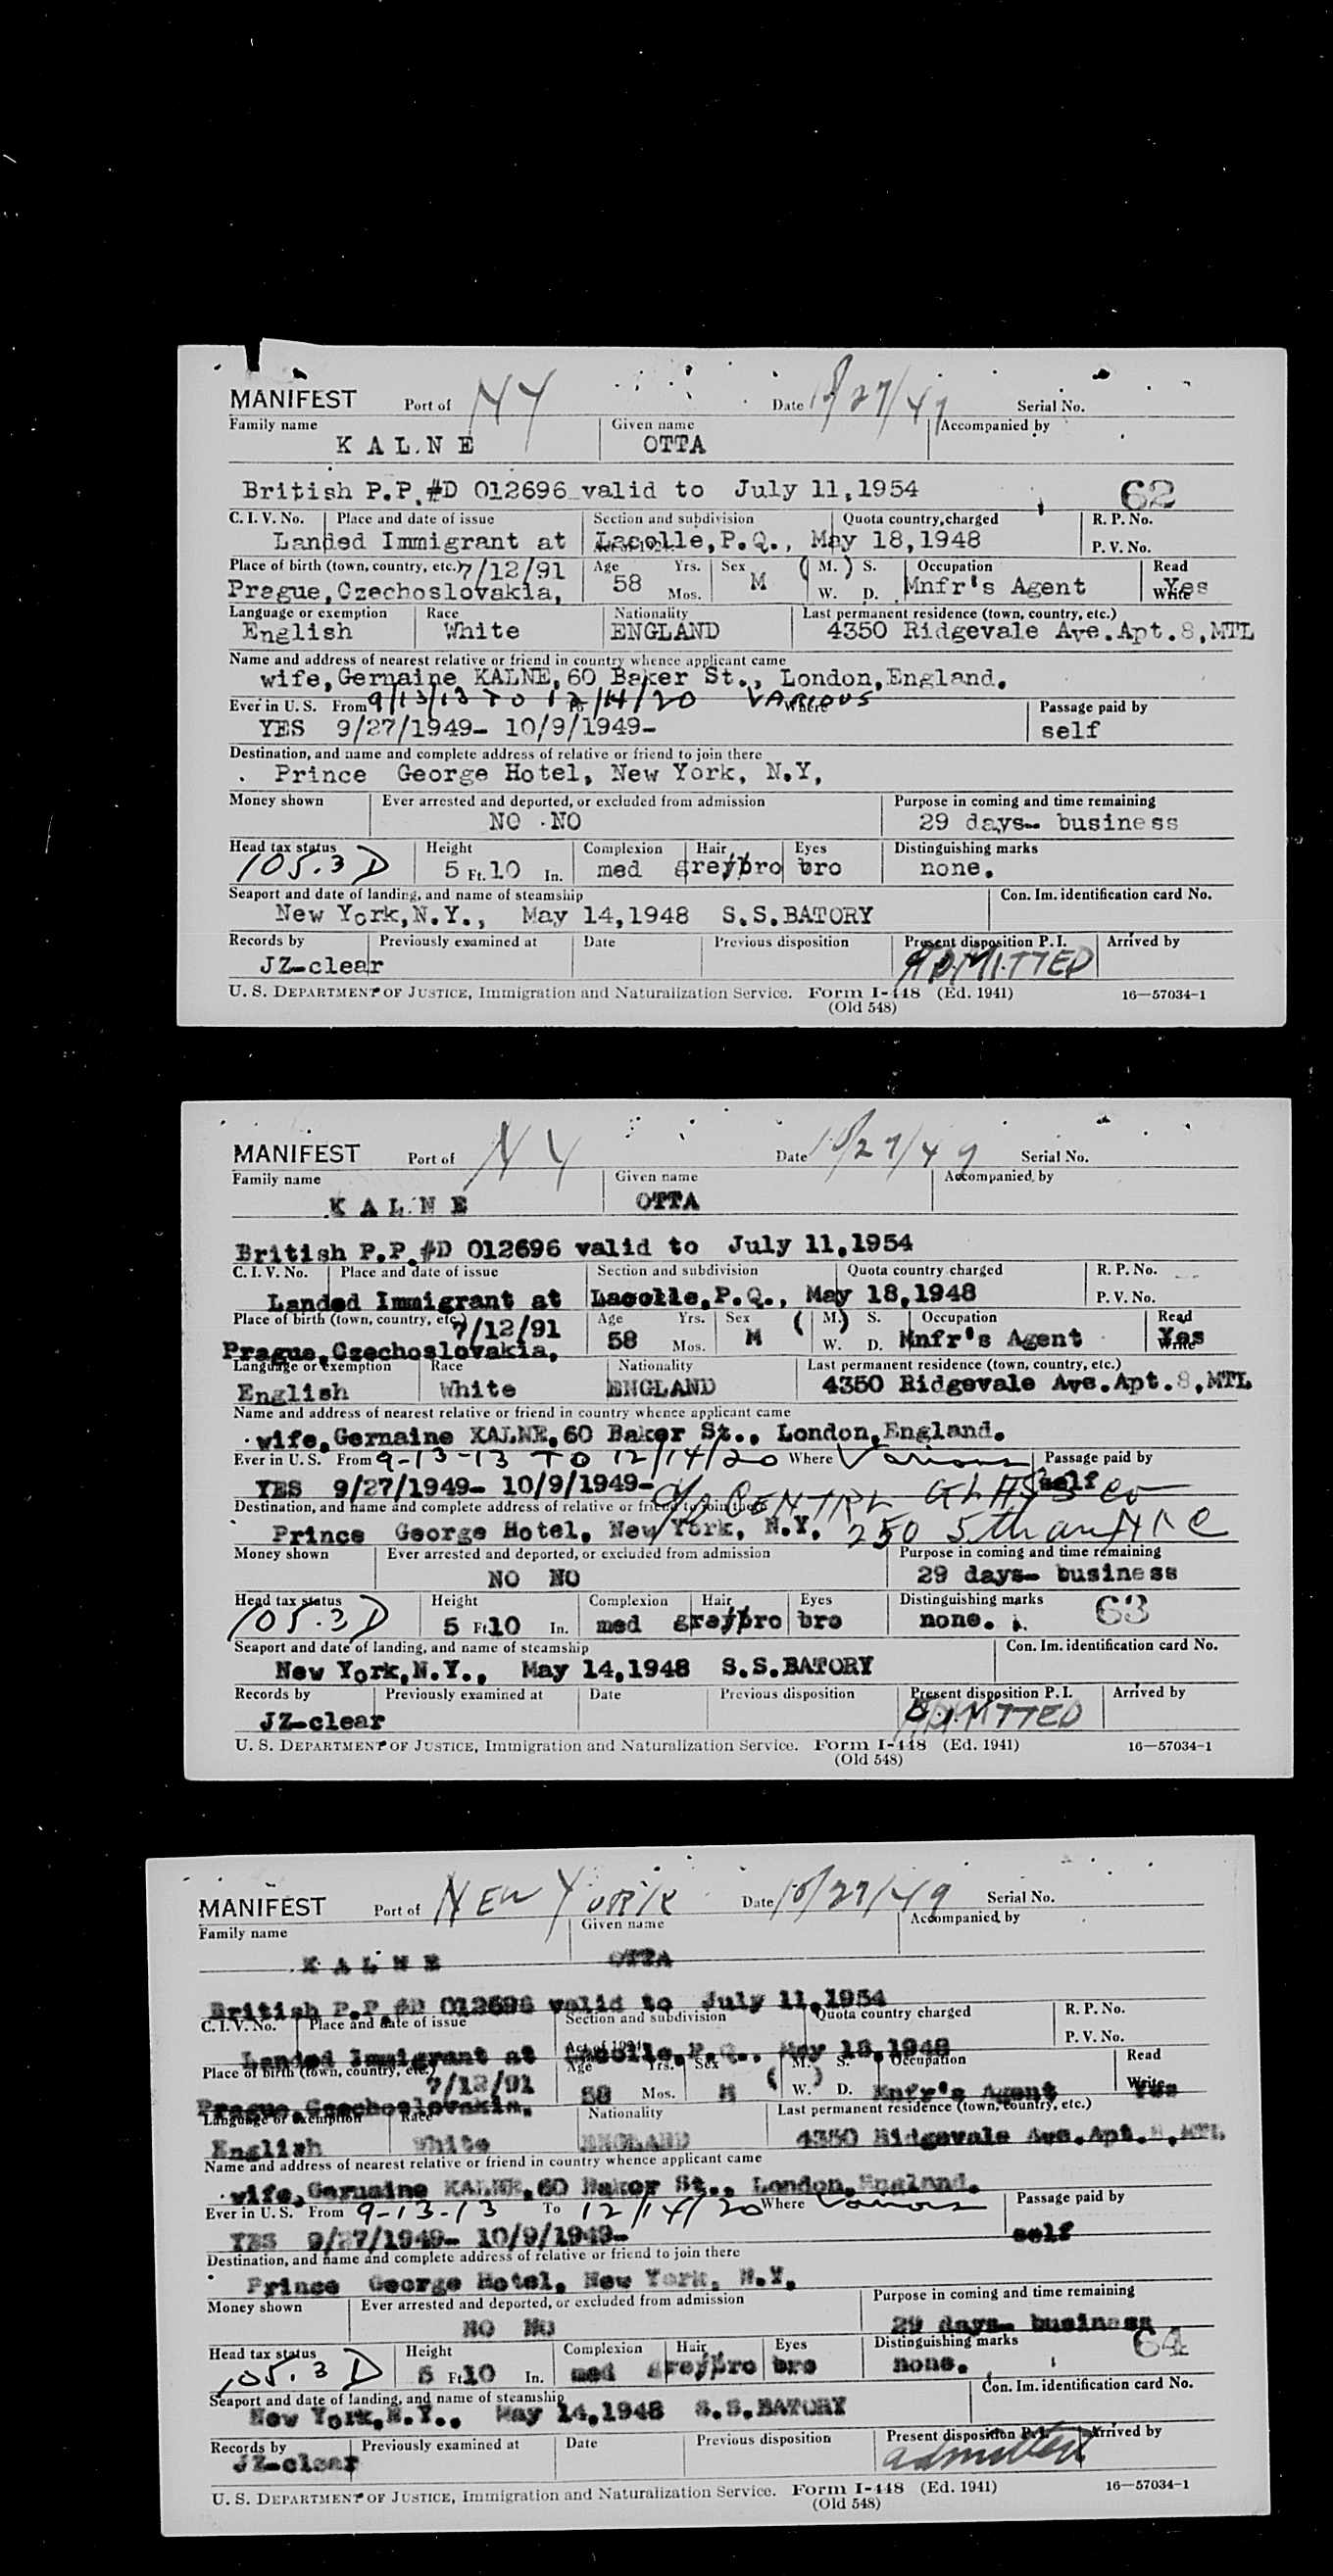 MANIFEST Port of NY Date 10/27/49 Serial No.
Family name Given name Accompanied by
K A L N E OTTA
British P.P.#D 012696 valid to July 11,1954 62
C. I. V. No. Place and date of issue Section and subdivision Quota country charged R. P. No.
Landed Immigrant at Lacolle,P.Q., May 18,1948 P. V. No.
Place of birth (town, country, etc.) 7/12/91 Age Yrs. Sex ( M. ) S. Occupation Read
Prague,Czechoslovakia, 58 Mos. M W. D. Mnfr's Agent Write Yes
Language or exemption Race Nationality Last permanent residence (town, country, etc.)
English White ENGLAND 4350 Ridgevale Ave.Apt.8,MTL
Name and address of nearest relative or friend in country whence applicant came
wife,Gernaine KALNE,60 Baker St., London,England.
Ever in U. S. From 9/13/13 TO 12/14/20 VARIOUS Where Passage paid by
YES 9/27/1949- 10/9/1949- self
Destination, and name and complete address of relative or friend to join there
Prince George Hotel, New York, N.Y,
Money shown Ever arrested and deported, or excluded from admission Purpose in coming and time remaining
NO NO 29 days- business
Head tax status Height Complexion Hair Eyes Distinguishing marks
105.3 D 5 Ft. 10 In. med grey/bro bro none.
Seaport and date of landing, and name of steamship Con. Im. identification card No.
New York,N.Y., May 14,1948 S.S.BATORY
Records by Previously examined at Date Previous disposition Present disposition P. I. Arrived by
JZ-clear ADMITTED
U. S. DEPARTMENT OF JUSTICE, Immigration and Naturalization Service. Form I-448 (Ed. 1941) 16—57034-1
(Old 548)
MANIFEST Port of NY Date 10/27/49 Serial No.
Family name Given name Accompanied by
K A L N E OTTA
British P.P.#D 012696 valid to July 11,1954
C. I. V. No. Place and date of issue Section and subdivision Quota country charged R. P. No.
Landed Immigrant at Lacolle,P.Q., May 18,1948 P. V. No.
Place of birth (town, country, etc.) 7/12/91 Age Yrs. Sex ( M. ) S. Occupation Read
Prague,Czechoslovakia, 58 Mos. M W. D. Mnfr's Agent Write Yes
Language or exemption Race Nationality Last permanent residence (town, country, etc.)
English White ENGLAND 4350 Ridgevale Ave.Apt.8,MTL
Name and address of nearest relative or friend in country whence applicant came
wife,Gernaine KALNE,60 Baker St., London,England.
Ever in U. S. From 9-13-13 TO 12/14/20 Where Various Passage paid by
YES 9/27/1949- 10/9/1949- self
Destination, and name and complete address of relative or friend to join there c/o CENTRL GLASS Co
Prince George Hotel, New York, N.Y. 250 5th NYC
Money shown Ever arrested and deported, or excluded from admission Purpose in coming and time remaining
NO NO 29 days- business
Head tax status Height Complexion Hair Eyes Distinguishing marks 63
105.3 D 5 Ft 10 In. med grey/bro bro none.
Seaport and date of landing, and name of steamship Con. Im. identification card No.
New York,N.Y., May 14,1948 S.S.BATORY
Records by Previously examined at Date Previous disposition Present disposition P. I. Arrived by
JZ-clear ADMITTED
U. S. DEPARTMENT OF JUSTICE, Immigration and Naturalization Service. Form I-448 (Ed. 1941) 16—57034-1
(Old 548)
MANIFEST Port of NEW YORK Date 10/27/49 Serial No.
Family name Given name Accompanied by
K A L N E OTTA
British P.P.#D 012696 valid to July 11,1954
C. I. V. No. Place and date of issue Section and subdivision Quota country charged R. P. No.
Landed Immigrant at Lacolle,P.Q., May 18,1948 P. V. No.
Place of birth (town, country, etc.) 7/12/91 Age Yrs. Sex ( M. ) S. Occupation Read
Prague,Czechoslovakia, 58 Mos. M W. D. Mnfr's Agent Write Yes
Language or exemption Race Nationality Last permanent residence (town, country, etc.)
English White ENGLAND 4350 Ridgevale Ave.Apt.8,MTL
Name and address of nearest relative or friend in country whence applicant came
wife,Gernaine KALNE,60 Baker St., London,England.
Ever in U. S. From 9-13-13 To 12/14/20 Where Various Passage paid by
YES 9/27/1949- 10/9/1949- self
Destination, and name and complete address of relative or friend to join there
Prince George Hotel, New York, N.Y.
Money shown Ever arrested and deported, or excluded from admission Purpose in coming and time remaining
NO NO 29 days- business
Head tax status Height Complexion Hair Eyes Distinguishing marks 64
105.3 D 5 Ft 10 In. med grey/bro bro none.
Seaport and date of landing, and name of steamship Con. Im. identification card No.
New York,N.Y., May 14,1948 S.S.BATORY
Records by Previously examined at Date Previous disposition Present disposition P. I. Arrived by
JZ-clear admitted
U. S. DEPARTMENT OF JUSTICE, Immigration and Naturalization Service. Form I-448 (Ed. 1941) 16—57034-1
(Old 548)